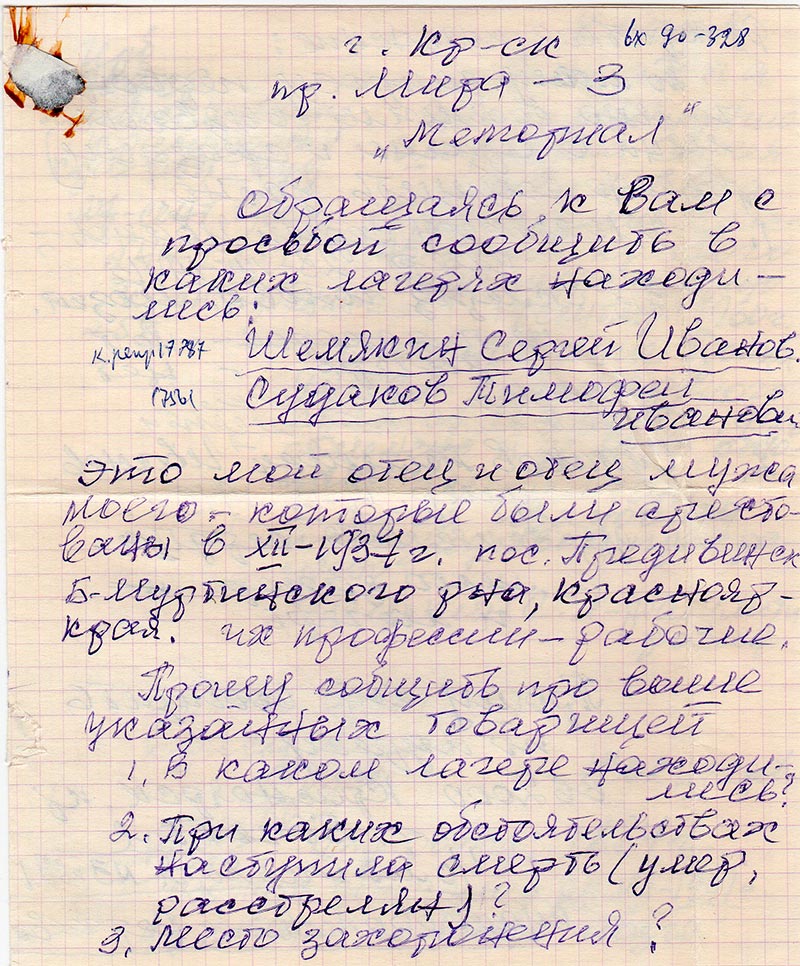 вх 90-328
г. Кр-ск
пр. Мира - 3
"Мемориал"
Обращаясь к Вам с
просьбой сообщить в
каких лагерях находи-
лись:
к.репр 17787 Шемякин Сергей Иванов.
17561 Судаков Тимофей
Иванович
это мой отец и отец мужа
моего - которые были аресто-
ваны в XII-1937 г. пос. Предивинск
Б-Муртинского р-на, Краснояр-
края. их профессии - рабочие.
Прошу собщить про выше
указанных товарищей
1. В каком лагере находи-
лись?
2. При каких обстоятельствах
наступила смерть (умер,
расстрелян)?
3. место захоронения?